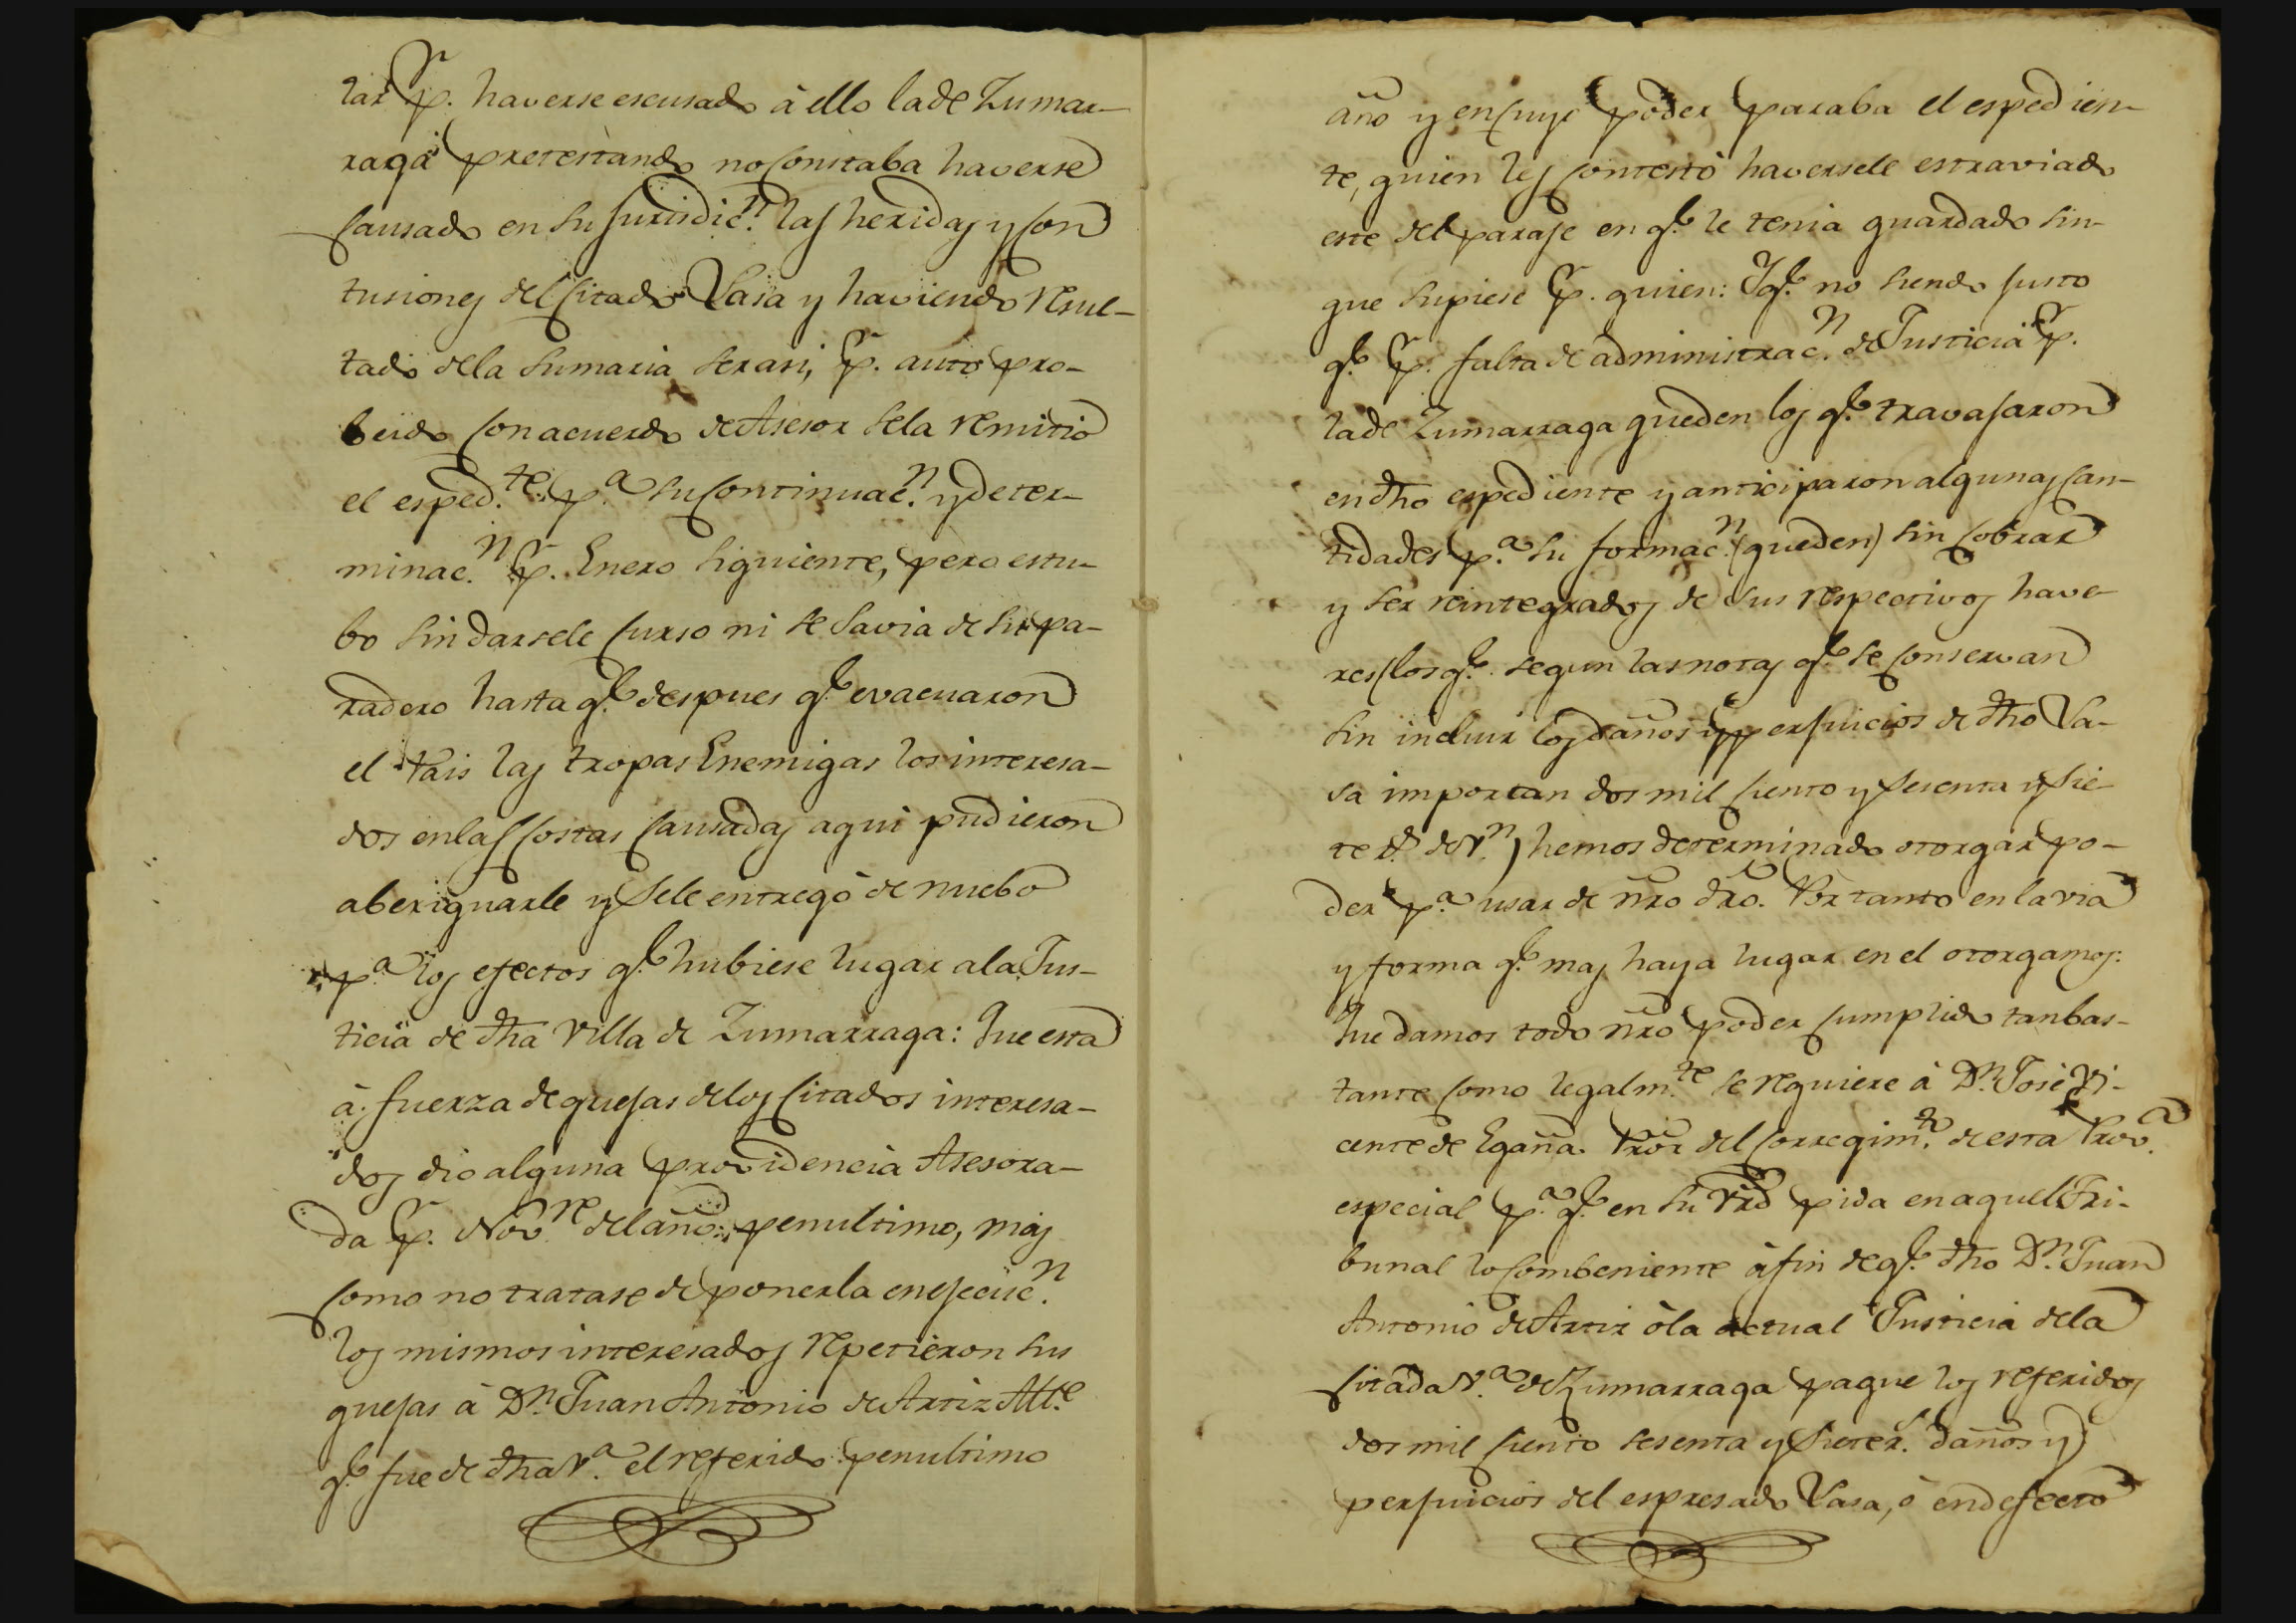 lar p.r haverse escusado à ello la de Zumar-
raga pretestando no constaba haverse
causado en su jurisdic.n las heridas y con
tusiones del citado Lasa y haviendo resul-
tado de la sumaria ser asi, p.r auto pro-
beido con acuerdo de Asesor se la remitió
el esped.te p.a su continuac.n y deter-
minac.n p.r Enero siguiente, pero estu-
bo sin darsele curso ni se savia de su pa-
radero hasta q.e despues q.e evacuaron
el Pais las tropas Enemigas los interesa-
dos en las costas causadas aqui pudieron
aberiguarle y se le entregò de nuebo
p.a los efectos q.e hubiese lugar a la Jus-
ticia de dha villa de Zumarraga: Que esta
à fuerza de quejas de los citados interesa-
dos dio alguna providencia Asesora-
da p.r Nov.re del año penultimo, mas
como no tratase de ponerla en ejecuc.n
los mismos interesados repetieron sus
quejas à D.n Juan Antonio de Artiz Alc.e
q.e fue de dha V.a el referido penultimo
año y en cuyo poder paraba el espedien-
te, quien les contestó haversele estraviado
este del paraje en q.e le tenia guardado sin
que supiese p.r quien: Y q.e no siendo justo
q.e p.r falta de administrac.n de Justicia p.r
la de Zumarraga queden los q.e travajaron
en dho espediente y anticiparon algunas can-
tidades p.a su formac.n (queden) sin cobrar
y ser reintegrados de sus respectivos have-
res (los q.e segun las notas q.e se conservan
sin incluir los daños y perjuicios de dho La-
sa importan dos mil ciento y sesenta y sie-
te r.s de v.n) hemos determinado otorgar po-
der p.a usar de nro dro. Por tanto en la via
y forma q.e mas haya lugar en el otorgamos:
Que damos todo nro poder cumplido tan bas-
tante como legalm.te se requiere à D.n José Vi-
cente de Egaña Pror del Corregim.to de esta Prov.a
especial p.a q.e en su vrd pida en aquel Tri-
bunal lo combeniente à fin de q.e dho D.n Juan
Antonio de Artiz ò la actual Justicia de la
citada V.a de Zumarraga pague los referidos
dos mil ciento sesenta y siete r.s daños y
perjuicios del espresado Lasa, ò en defecto